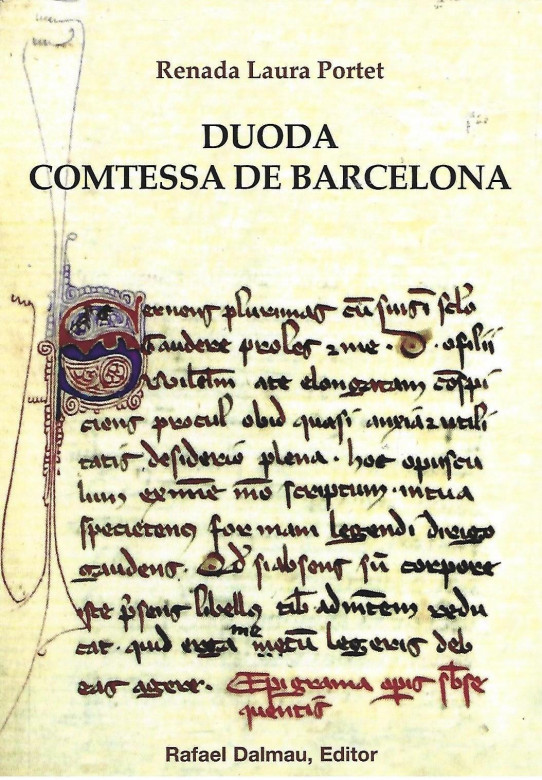 Renada Laura Portet
DUODA
COMTESSA DE BARCELONA
Cernens plurimas cū suis ī sclo
Gaudere proles ꝛ me · D · o filii
Wilelm̄ ate elongatam cōspi
ciens procul obid quasi anxia ꝛ utili
tatis desiderio plena · hoc opuscu
lum ex nīne mō scriptum · in tua
specietenus formam legendi dirigo
gaudens · Qd̄ si absens sū corpore
iste p̄sens libellꝰ tibi ad mētem redu
cat · quid erga me metū legeris deb
eas agere · Epigrama opis sbse
quentis
Rafael Dalmau, Editor